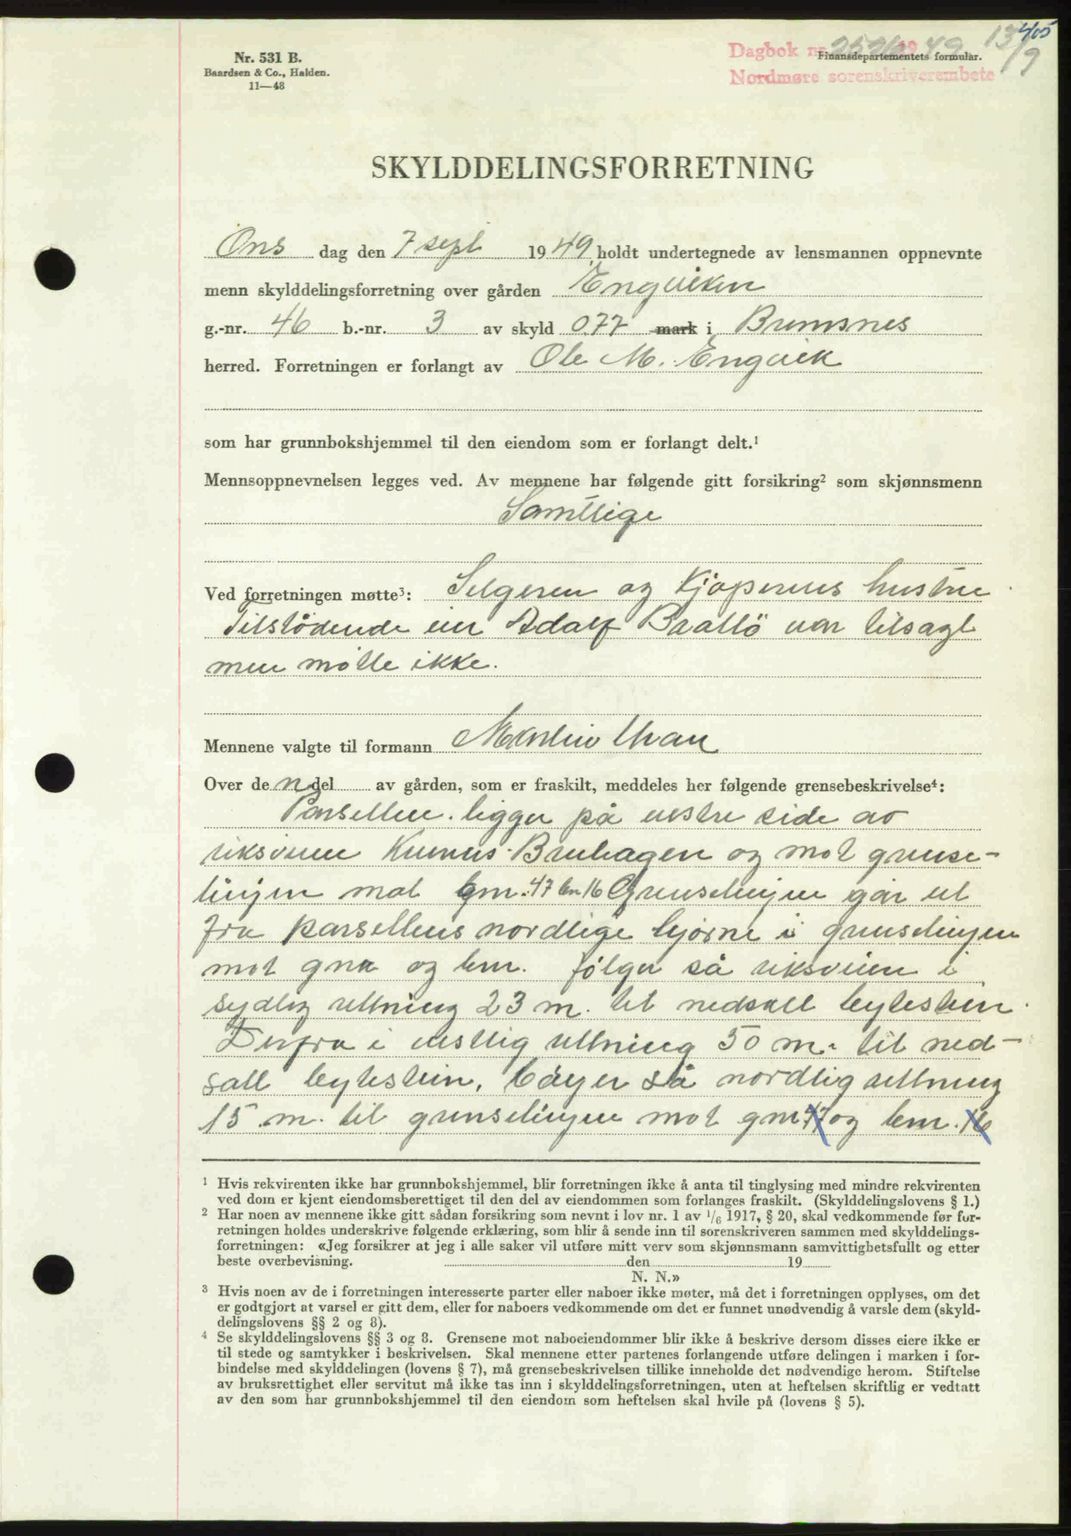 405
Dagbok nr. 2526 1949 13/9
Nordmøre sorenskriverembete
Nr. 531 B.
Baardsen & Co., Halden.
11—48
Finansdepartementets formular.
SKYLDDELINGSFORRETNING
Ons dag den 7 sept 1949, holdt undertegnede av lensmannen oppnevnte
menn skylddelingsforretning over gården Engviken
g.-nr. 46 b.-nr. 3 av skyld 0.77 mark i Bremsnes
herred. Forretningen er forlangt av Ole M. Engvik
som har grunnbokshjemmel til den eiendom som er forlangt delt.¹
Mennsoppnevnelsen legges ved. Av mennene har følgende gitt forsikring² som skjønnsmenn
Samtlige
Ved forretningen møtte³: Selgeren og kjøperens hustru
Tilstödende eier Adolf Brattö var tilsagt
men møtte ikke.
Mennene valgte til formann Martin
Over de n del av gården, som er fraskilt, meddeles her følgende grensebeskrivelse⁴:
Parsellen ligger på vestre side av
riksveien Bruhagen og mot grense-
linjen mot bm. 47 bn 16 Grenselinjen går ut
fra parsellens nordlige hjørne i grenselinjen
mot gnr og bnr. følger så riksveien i
sydlig rettning 23 m. til nedsatt bytestein.
Derfra i vestlig rettning 50 m. til ned-
satt bytestein, bøyer så nordlig rettning
15 m. til grenselinjen mot gnr 47 og bnr. 16
¹ Hvis rekvirenten ikke har grunnbokshjemmel, blir forretningen ikke å anta til tinglysing med mindre rekvirenten
ved dom er kjent eiendomsberettiget til den del av eiendommen som forlanges fraskilt. (Skylddelingslovens § 1.)
² Har noen av mennene ikke gitt sådan forsikring som nevnt i lov nr. 1 av 1/6 1917, § 20, skal vedkommende før for-
retningen holdes underskrive følgende erklæring, som blir å sende inn til sorenskriveren sammen med skylddelings-
forretningen: «Jeg forsikrer at jeg i alle saker vil utføre mitt verv som skjønnsmann samvittighetsfullt og etter
beste overbevisning. den 19
N. N.»
³ Hvis noen av de i forretningen interesserte parter eller naboer ikke møter, må det i forretningen opplyses, om det
er godtgjort at varsel er gitt dem, eller for naboers vedkommende om det er funnet unødvendig å varsle dem (skyld-
delingslovens §§ 2 og 8).
⁴ Se skylddelingslovens §§ 3 og 8. Grensene mot naboeiendommer blir ikke å beskrive dersom disses eiere ikke er
til stede og samtykker i beskrivelsen. Skal mennene etter partenes forlangende utføre delingen i marken i for-
bindelse med skylddelingen (lovens § 7), må grensebeskrivelsen tillike inneholde det nødvendige herom. Stiftelse
av bruksrettighet eller servitut må ikke tas inn i skylddelingsforretningen, uten at heftelsen skriftlig er vedtatt
av den som har grunnbokshjemmel til den eiendom som heftelsen skal hvile på (lovens § 5).